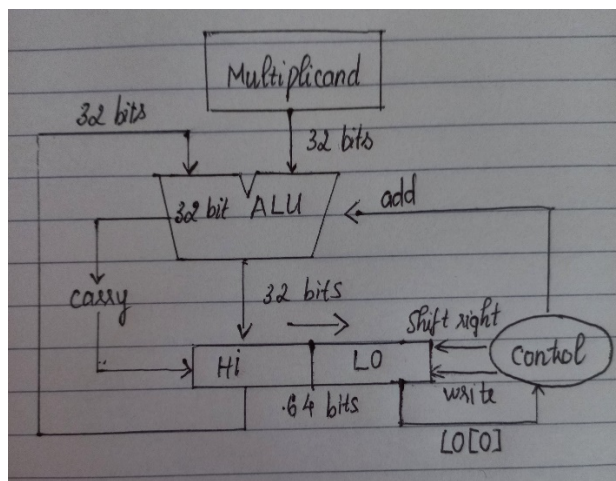 Multiplicand
32 bits
32 bits
32 bit ALU
add
carry
32 bits
Shift right
Hi
LO
Control
64 bits
write
LO[0]